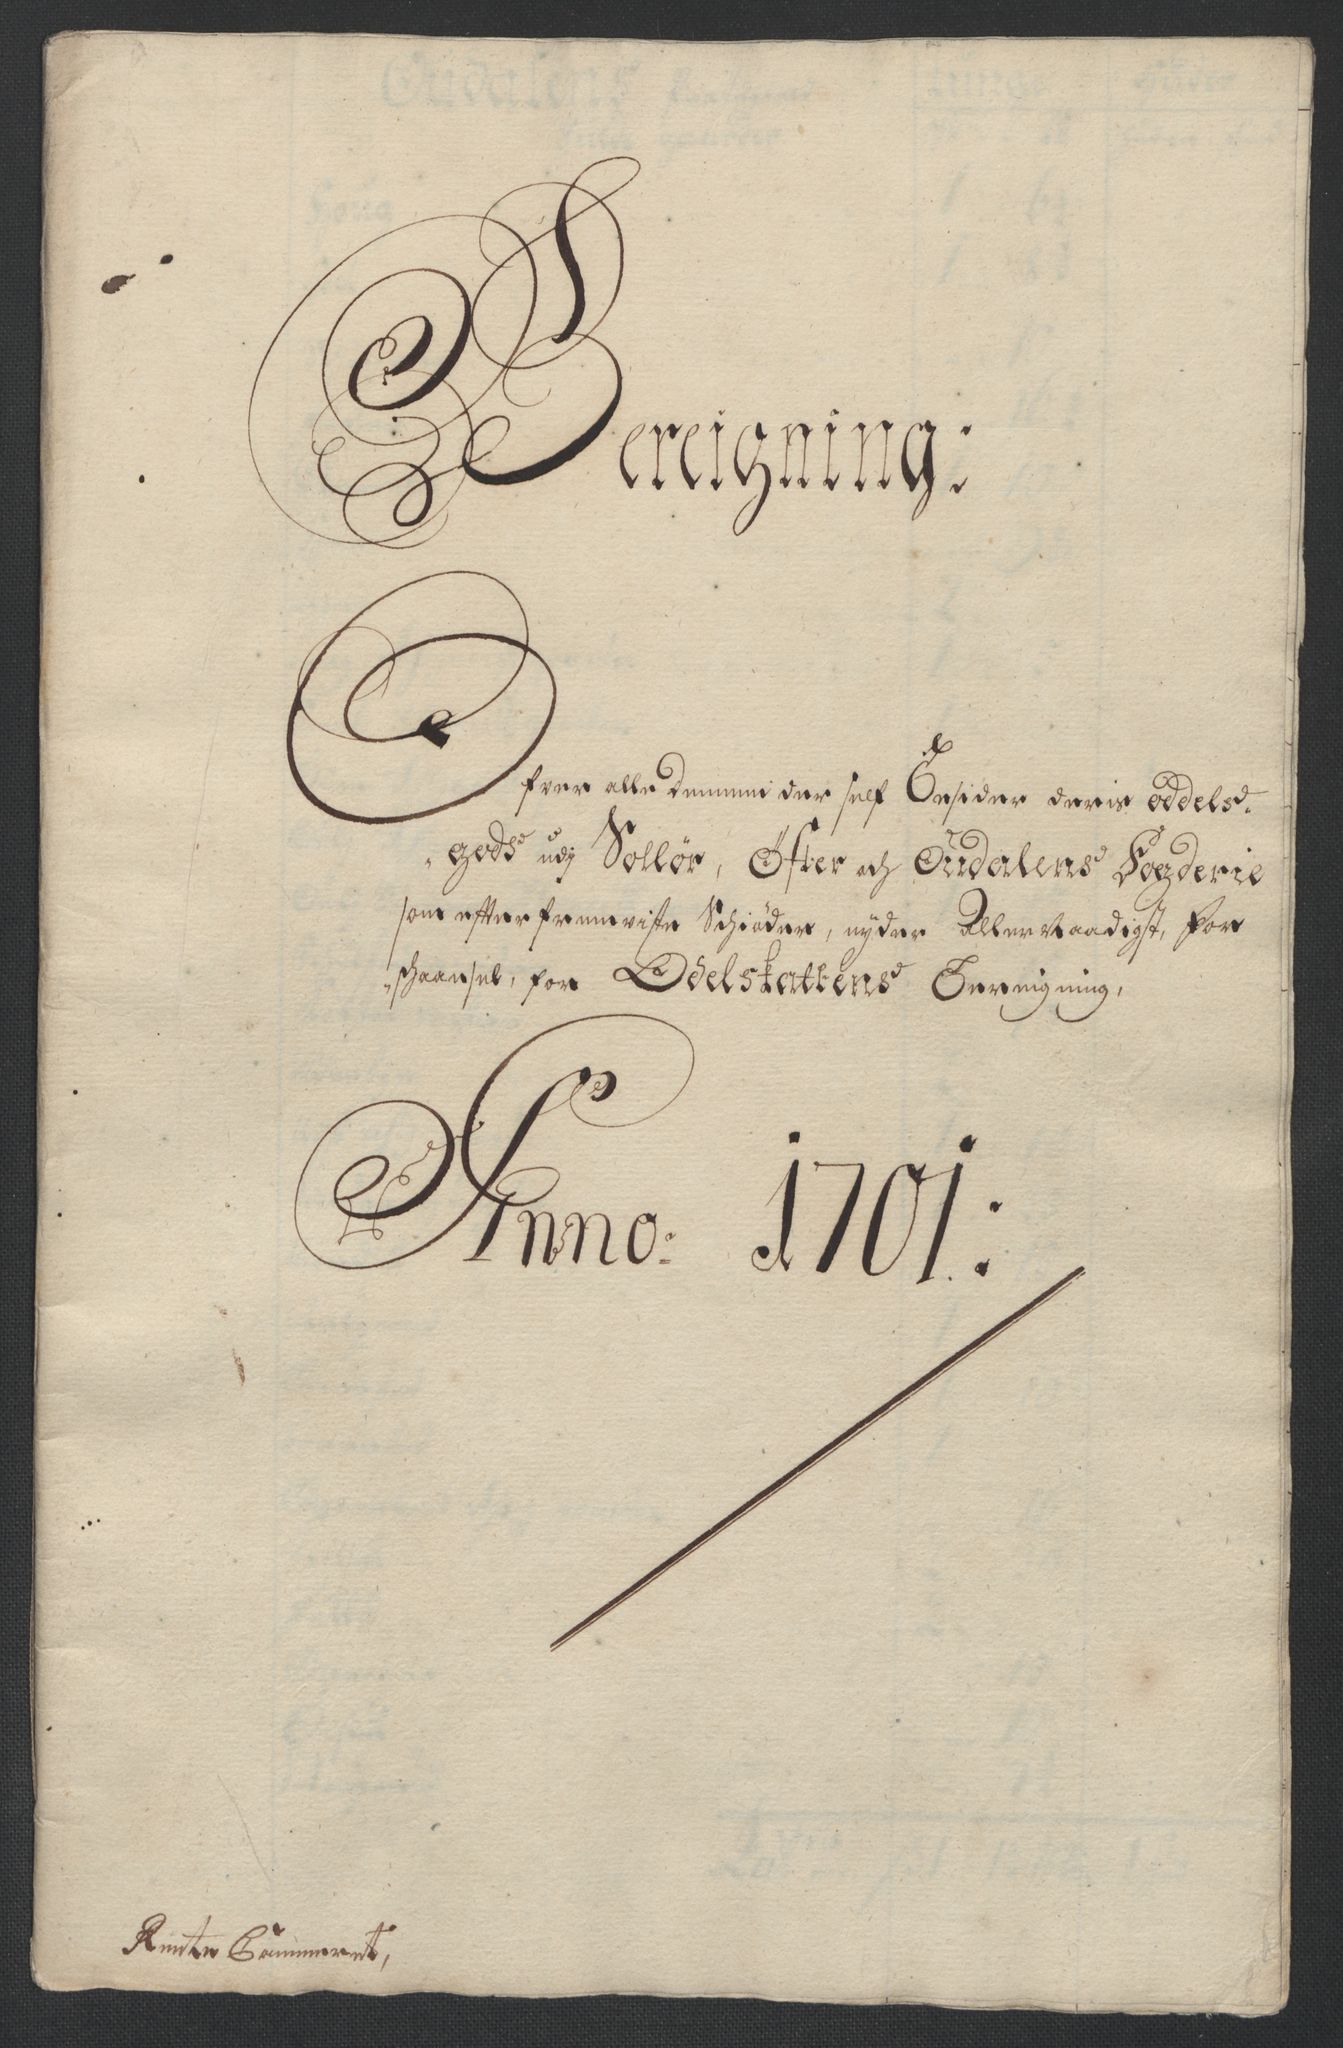 Bereigning:
Ofver alle Demme der self Besider deris oddels-
gods udj Sollør, Øster och Oudalens Fogderie
som efter fremviste Schiøder, nyder Allernaadigst, for
schaansel, for Odelskattens Bereigning,
Anno: 1701:
Rente Cammeret,